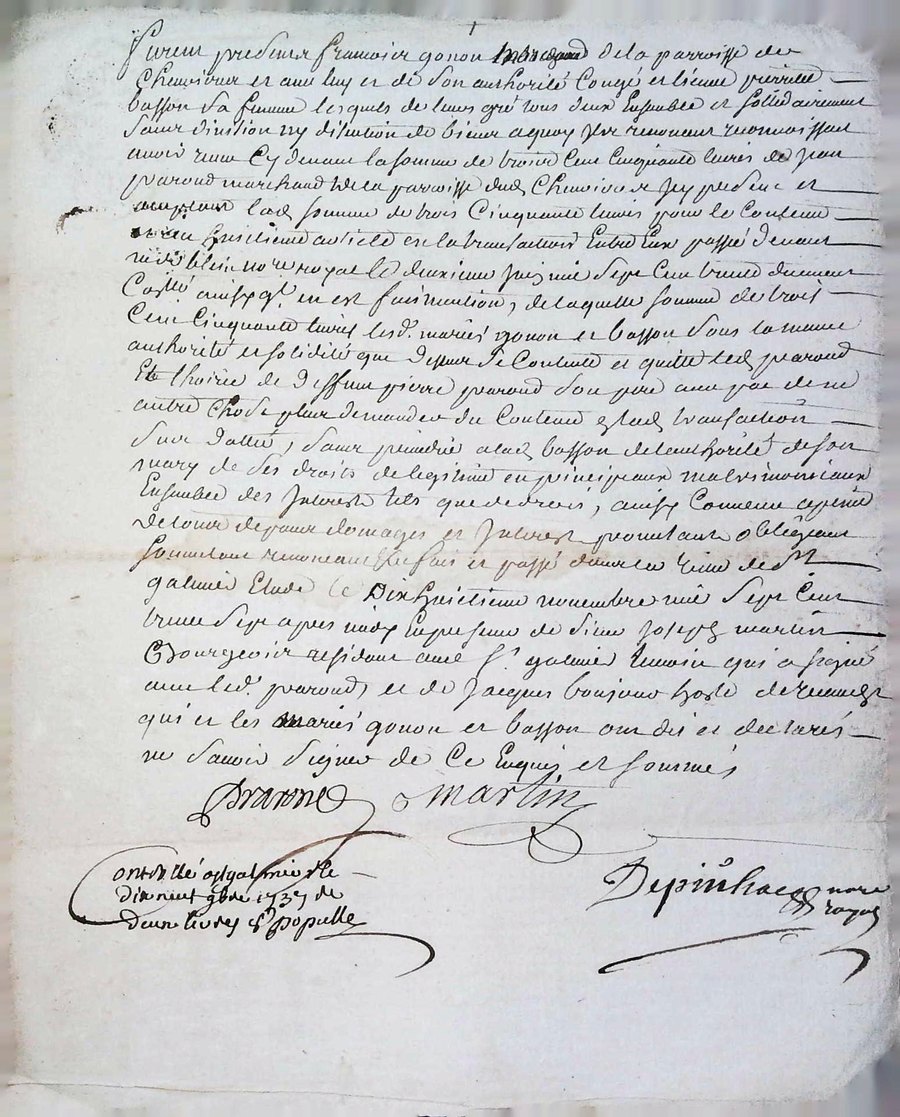 furent presents francois gonon marchand de la parroisse de
Chevrieres et avec luy et de son authorité Congé et licence pierrette
basson sa femme lesquels de leurs gré tous deux Ensemble et sollidairement
sans division ny discution de biens a quoy ils renoncent reconnoissent
avoir receu Cy devant la somme de trois Cent Cinquante livres de Jean
parond marchand de la parroisse dud Chevrieres Icy present et
acceptant lad somme de trois Cinquante livres pour le Contenu
huitieme article en la transaction Entre Eux passé devant
me blein nore royal le deuxieme Juin mil Sept Cent trente duement
Collé ainsy qt en est fait mention, de laquelle somme de trois
Cent Cinquante livres lesd. mariés gonon et basson sous la meme
authorité et solidité que dessus se Contente et quitte led parond
Et hoirie de deffunt pierre parond son pere avec pac de ne
autre chose plus demander du Contenu lad transaction
sus datté, sans prejudice a lad basson de l'authorité de son
mary de ses droits de legitime en principaux matrimoniaux
Ensemble des Interest tels que de droit, ainsy Convenu a peine
de tous depans domages et Interest promettant obligeant
soumettant renonceant fait et passé dans la ville de St
galmier Etude le Dix huitieme novembre mil Sept Cent
trente Sept apres midy En presence de sieur Joseph martin
Bourgeois residant aud St. galmier temoin qui a signé
avec led. parond, et de Jacques bonjour hoste
qui et les mariés gonon et basson ont dit et declarés
ne savoir signer de Ce Enquis et sommés
Prarond martin
Controllé a st galmier le
dix neuf 9bre 1737 Rx
douze livres St populle
Depinhac nore
royal